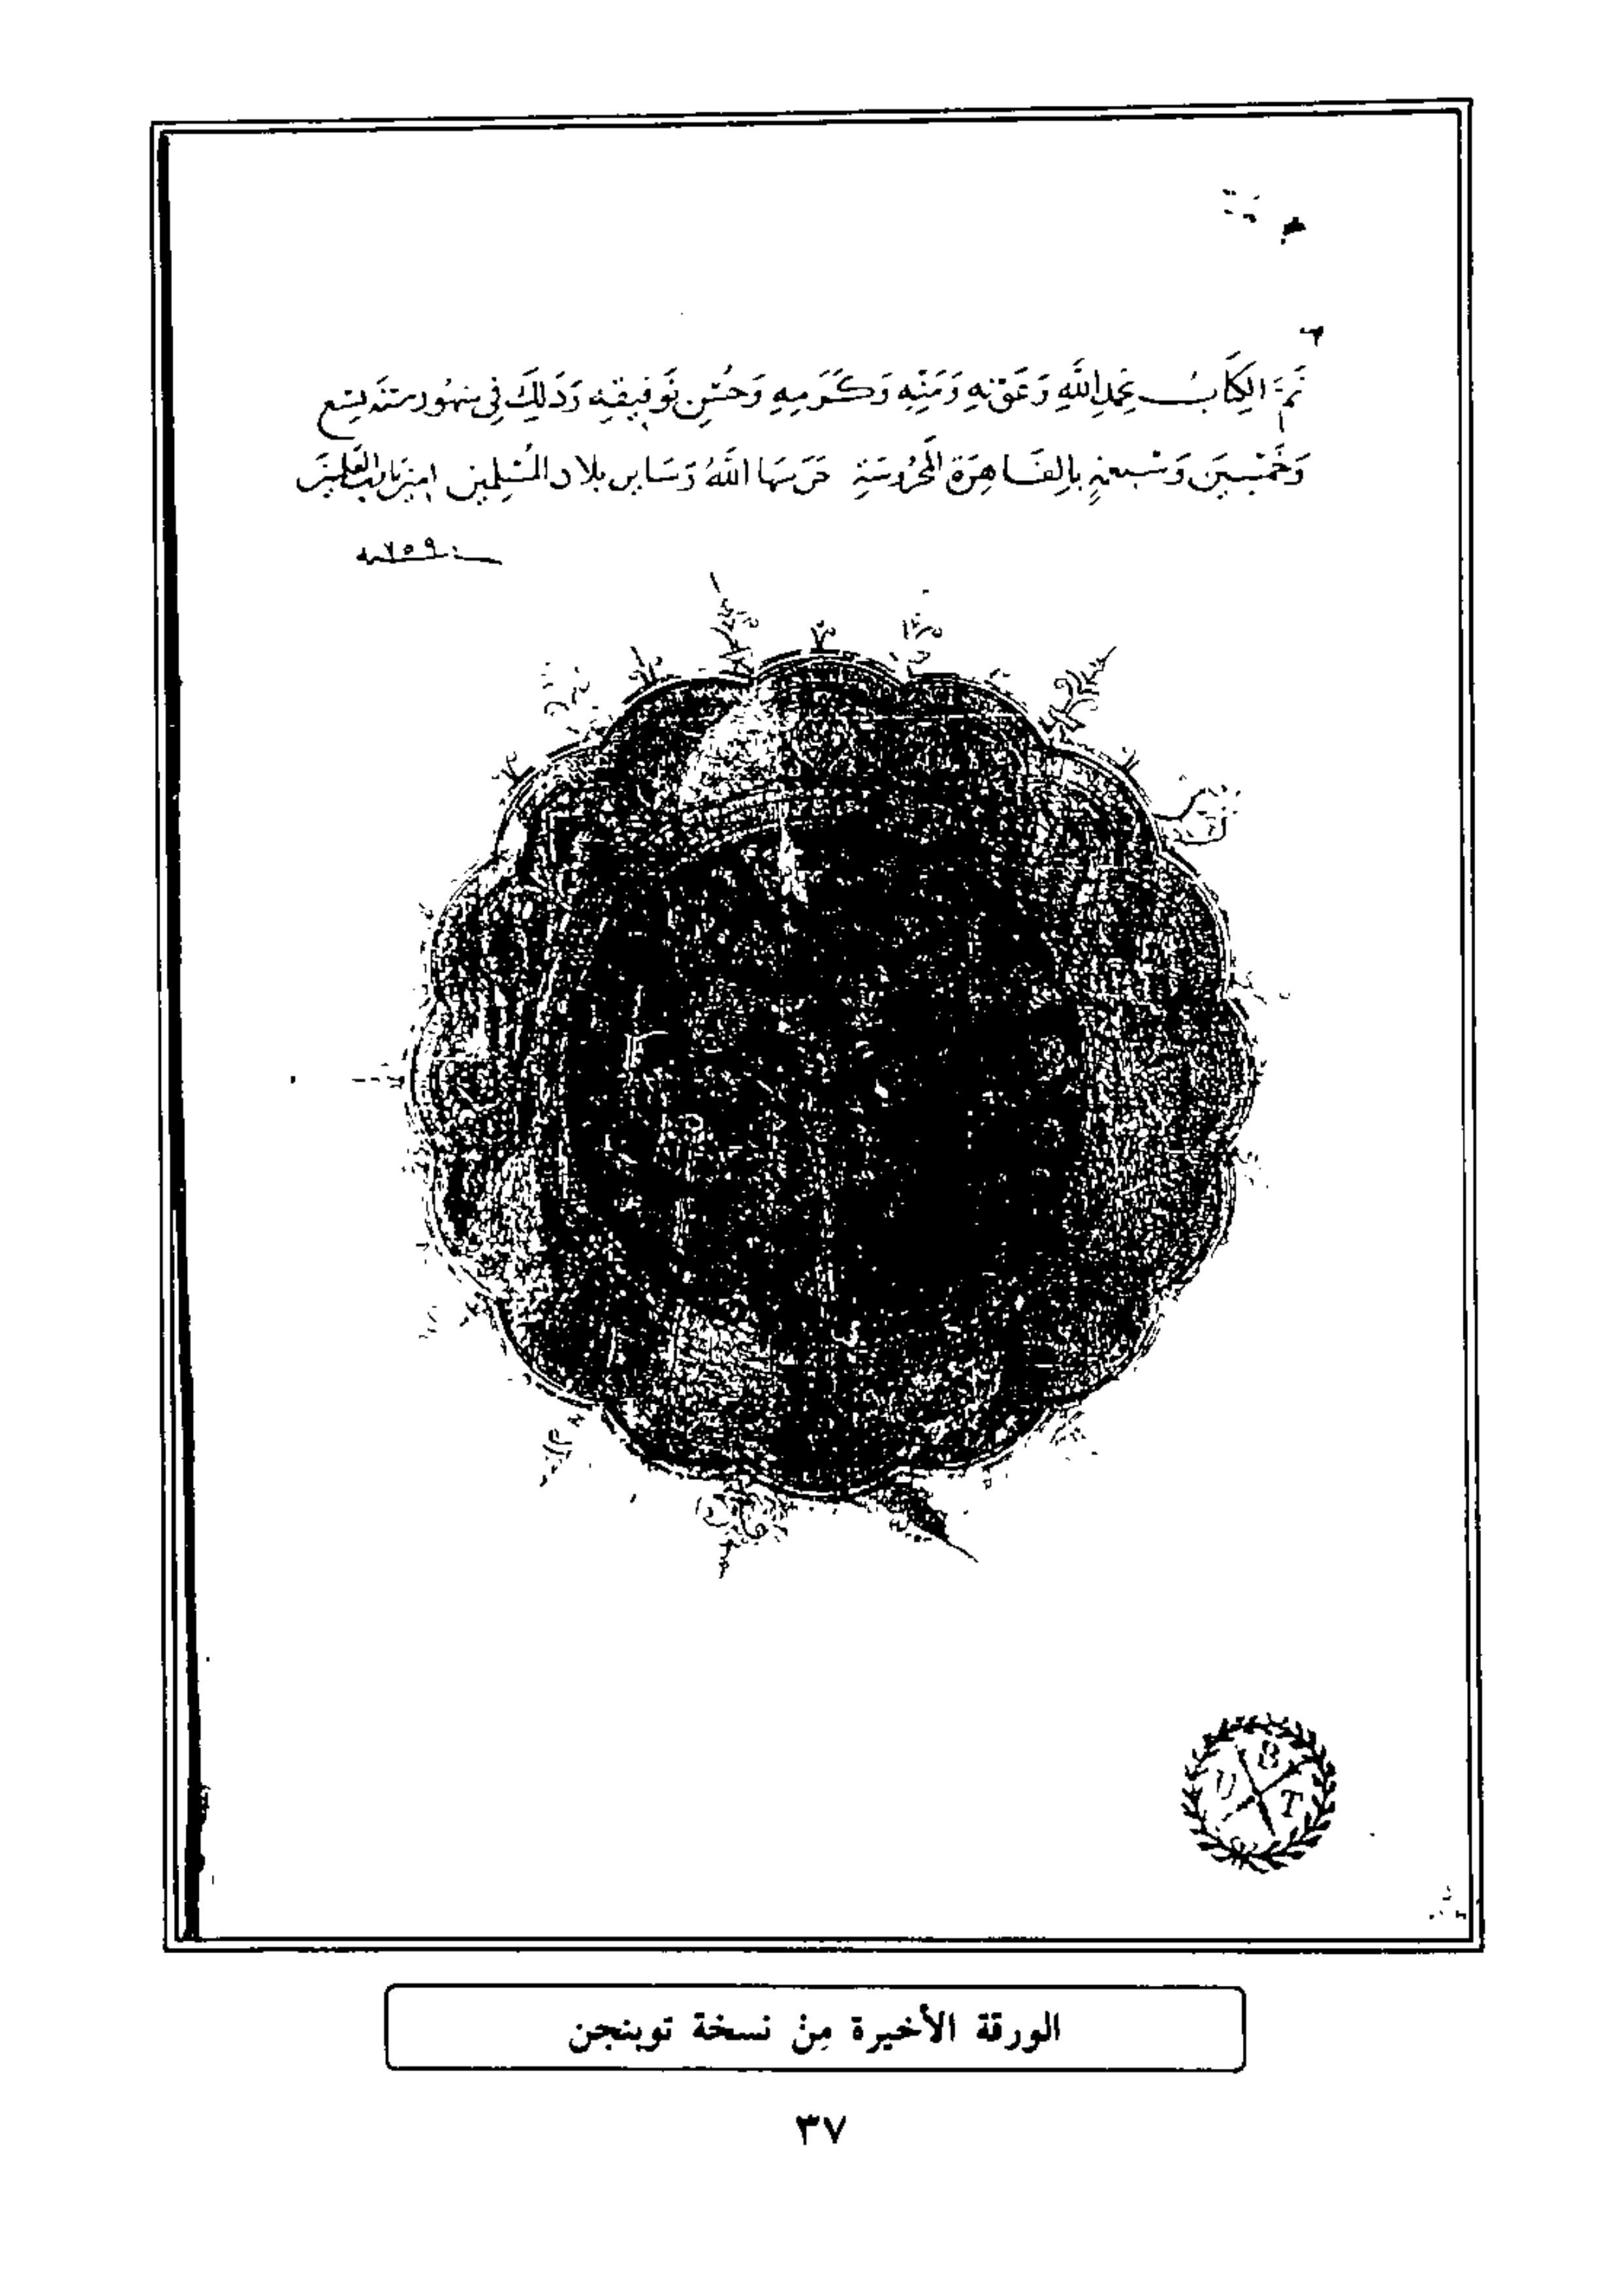 تَمَّ الكِتَابُ بِحَمدِ اللَّهِ وَعَوْنِهِ وَمَنِّهِ وَكَرَمِهِ وَحُسْنِ تَوْفِيقِهِ وَذَلِكَ فِي شهُور سَنَة تِسْع
وَخَمْسِين وَسَبْعمِئةٍ بِالقَاهِرَة المَحْرُوسَةِ حَرَسَهَا اللَّهُ وَسَايِر بِلاد المُسْلِمِين امِين يَارَب العَالَمِين
سنة ٧٥٩
U B T
الورقة الأخيرة مِنْ نسخة توبنجن
٣٧